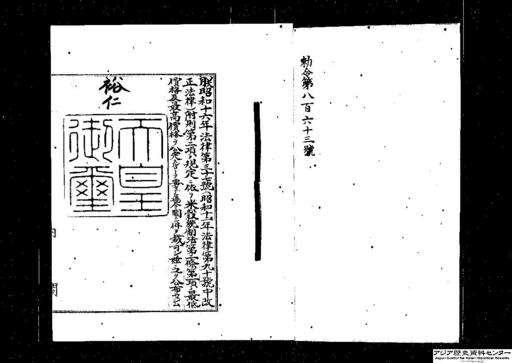 勅令第八百六十三號
朕昭和十六年法律第三十二號(昭和十一年法律第九十號中改
正法律)附則第二項ノ規定ニ依リ米穀統制法第二條第一項ノ最低
價格及最高價格ヲ公定セザルノ件ヲ裁可シ茲ニ之ヲ公布セシム
裕仁
天皇
御璽
内閣
アジア歴史資料センター
Japan Center for Asian Historical Records